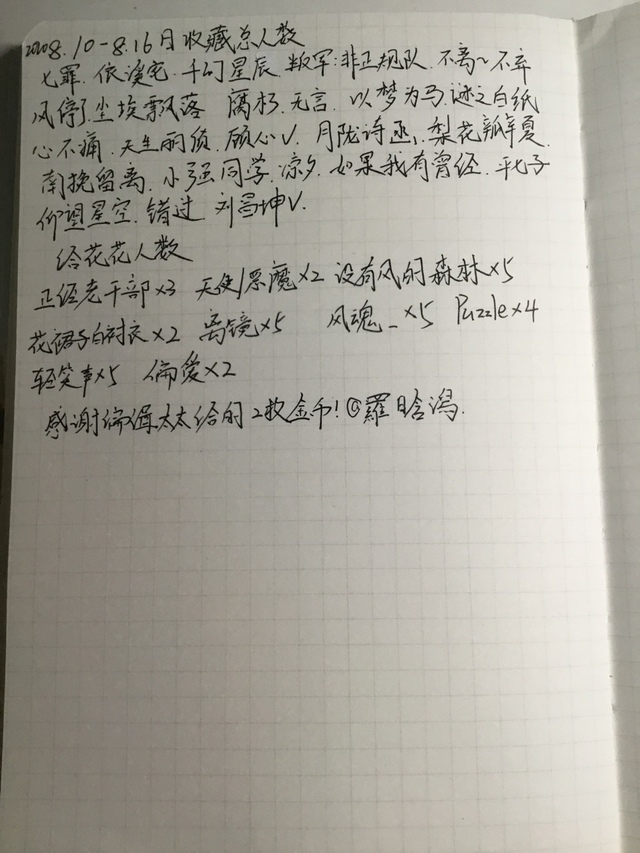 2020 8.10-8.16日收藏总人数
七罪.依溪宅.千幻星辰.叛军:非正规队.不离~不弃
风停了.尘埃飘落 腐朽.无言.以梦为马.谜之白纸
心不痛.天生丽质.顾心V.月陇诗函,.梨花瓣夏.
南挽留离.小强同学.凉夕.如果我有曾经.平七子
仰望星空.错过 刘昌坤V.
给花花人数
正经老干部×3 天使/恶魔×2 没有风的森林×5
花裙子白衬衣×2 离镜×5 风魂_×5 Puzzle×4
轻笑声×5 偏爱×2
感谢编辑太太给的2枚金币!@羅晗潟.